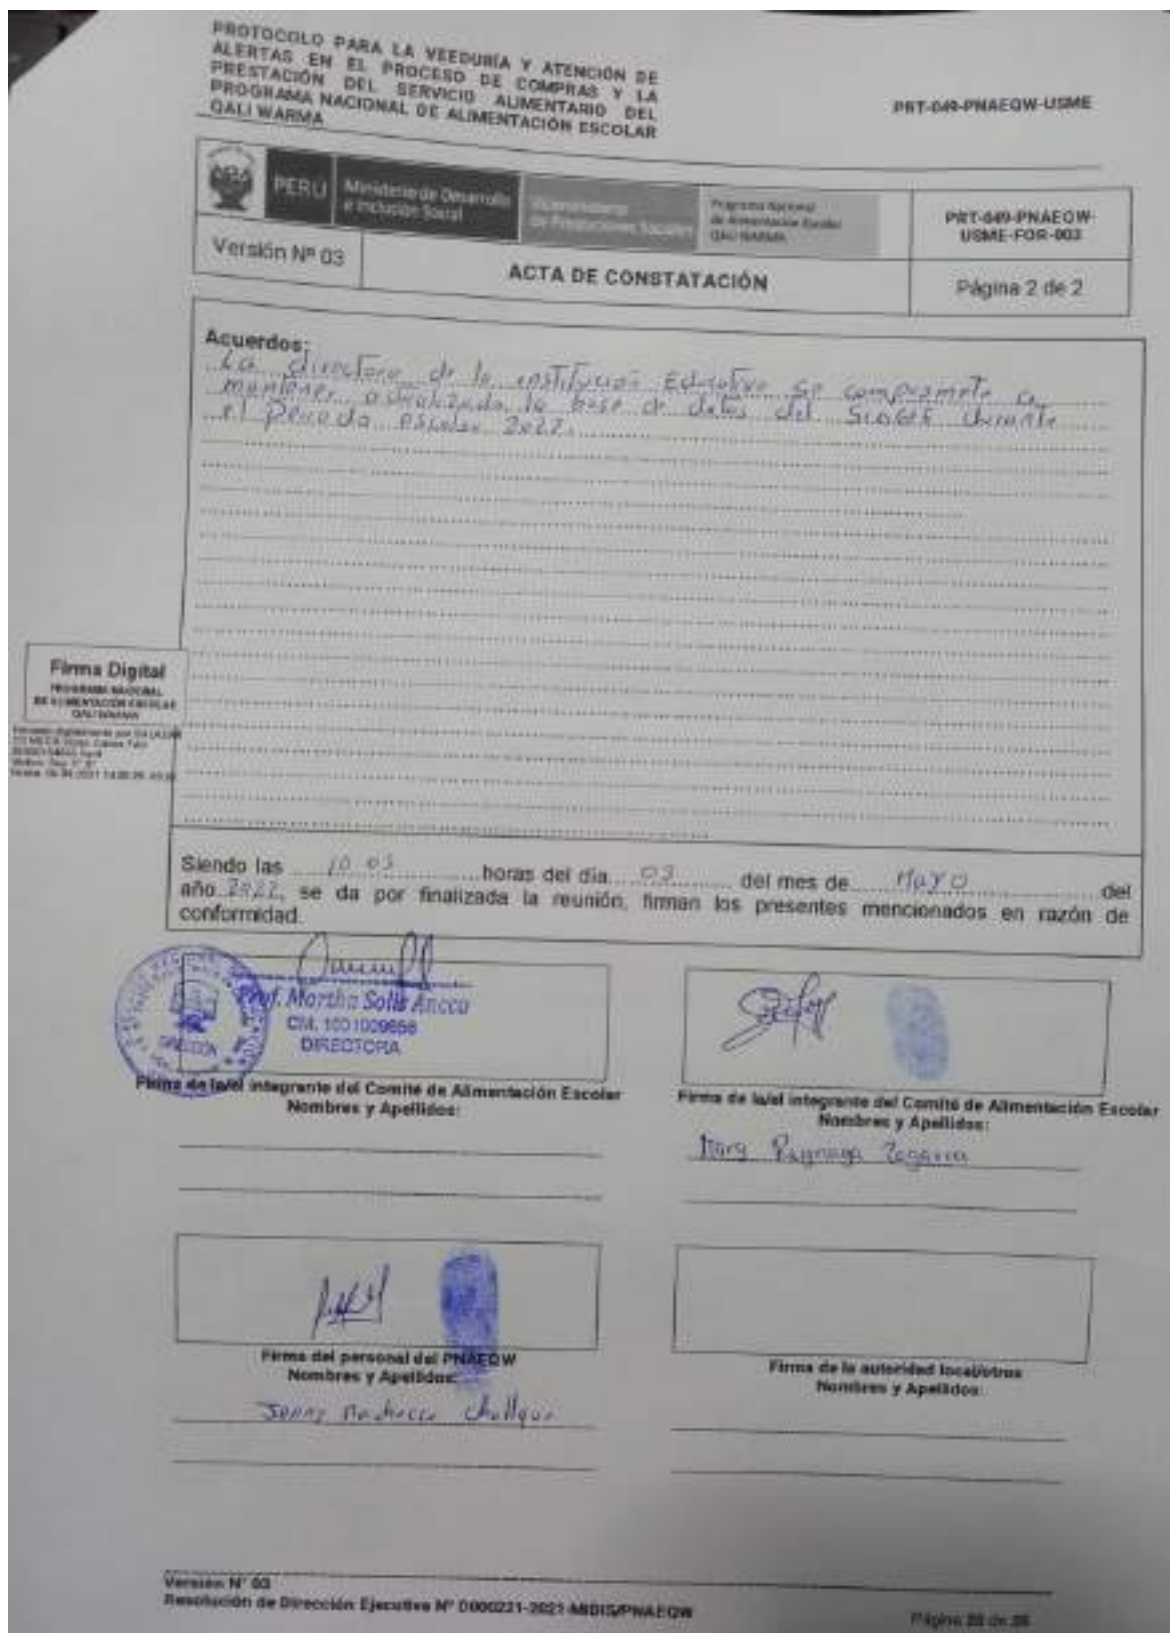 PROTOCOLO PARA LA VEEDURÍA Y ATENCIÓN DE
ALERTAS EN EL PROCESO DE COMPRAS Y LA
PRESTACIÓN DEL SERVICIO ALIMENTARIO DEL
PROGRAMA NACIONAL DE ALIMENTACIÓN ESCOLAR
QALI WARMA
PRT-049-PNAEQW-USME
PERÚ
Ministerio de Desarrollo
e Inclusión Social
Viceministerio
de Prestaciones Sociales
Programa Nacional
de Alimentación Escolar
QALI WARMA
PRT-049-PNAEQW-
USME-FOR-003
Versión Nº 03
ACTA DE CONSTATACIÓN
Página 2 de 2
Acuerdos:
La directora de la institución Educativa se compromete a
mantener actualizada la base de datos del durante
el Periodo escolar 2022.
Firma Digital
PROGRAMA NACIONAL
DE ALIMENTACIÓN ESCOLAR
QALI WARMA
Siendo las 10 03 horas del día 03 del mes de MAYO del
año 2022, se da por finalizada la reunión, firman los presentes mencionados en razón de
conformidad.
Prof. Martha Solis Ancco
CM. 1001009656
DIRECTORA
DIRECCIÓN
Firma de la/el integrante del Comité de Alimentación Escolar
Nombres y Apellidos:
Firma de la/el integrante del Comité de Alimentación Escolar
Nombres y Apellidos:
Zegarra
Firma del personal del PNAEQW
Nombres y Apellidos:
Firma de la autoridad local/otros
Nombres y Apellidos:
Versión N° 03
Resolución de Dirección Ejecutiva N° D000221-2021-MIDIS/PNAEQW